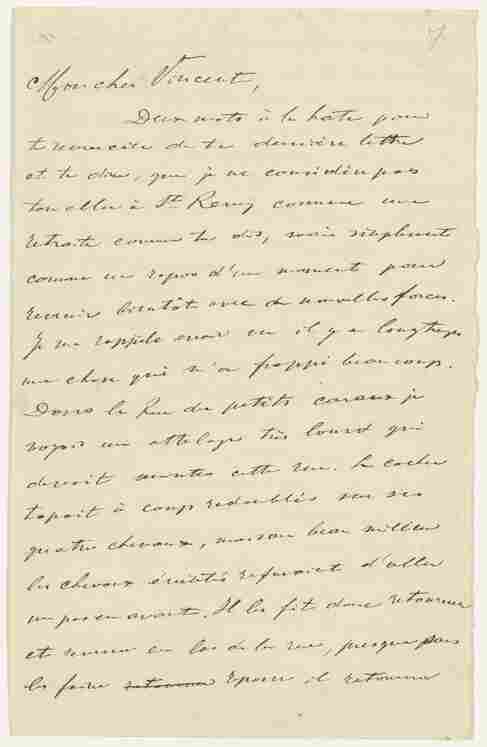 7.
Mon cher Vincent,
Deux mots à la hâte pour
te remercier de ta dernière lettre
et te dire, que je ne considère pas
ton aller à St. Remy comme une
retraite comme tu dis, mais simplement
comme un repos d'un moment pour
revenir bientôt avec de nouvelles forces.
Je me rappelle avoir vu il y a longtemps
une chose qui m'a frappé beaucoup.
Dans la Rue des petits careaux je
voyais un attelage très lourd qui
devait monter cette rue. Le cocher
tapait à coup redoublés sur ses
quatre chevaux, mais au beau milieu
les chevaux éreintés refusaient d'aller
un pas en avant. Il les fit donc retourner
et revenu en bas de la rue, presque sans
les faire reposer il retourna